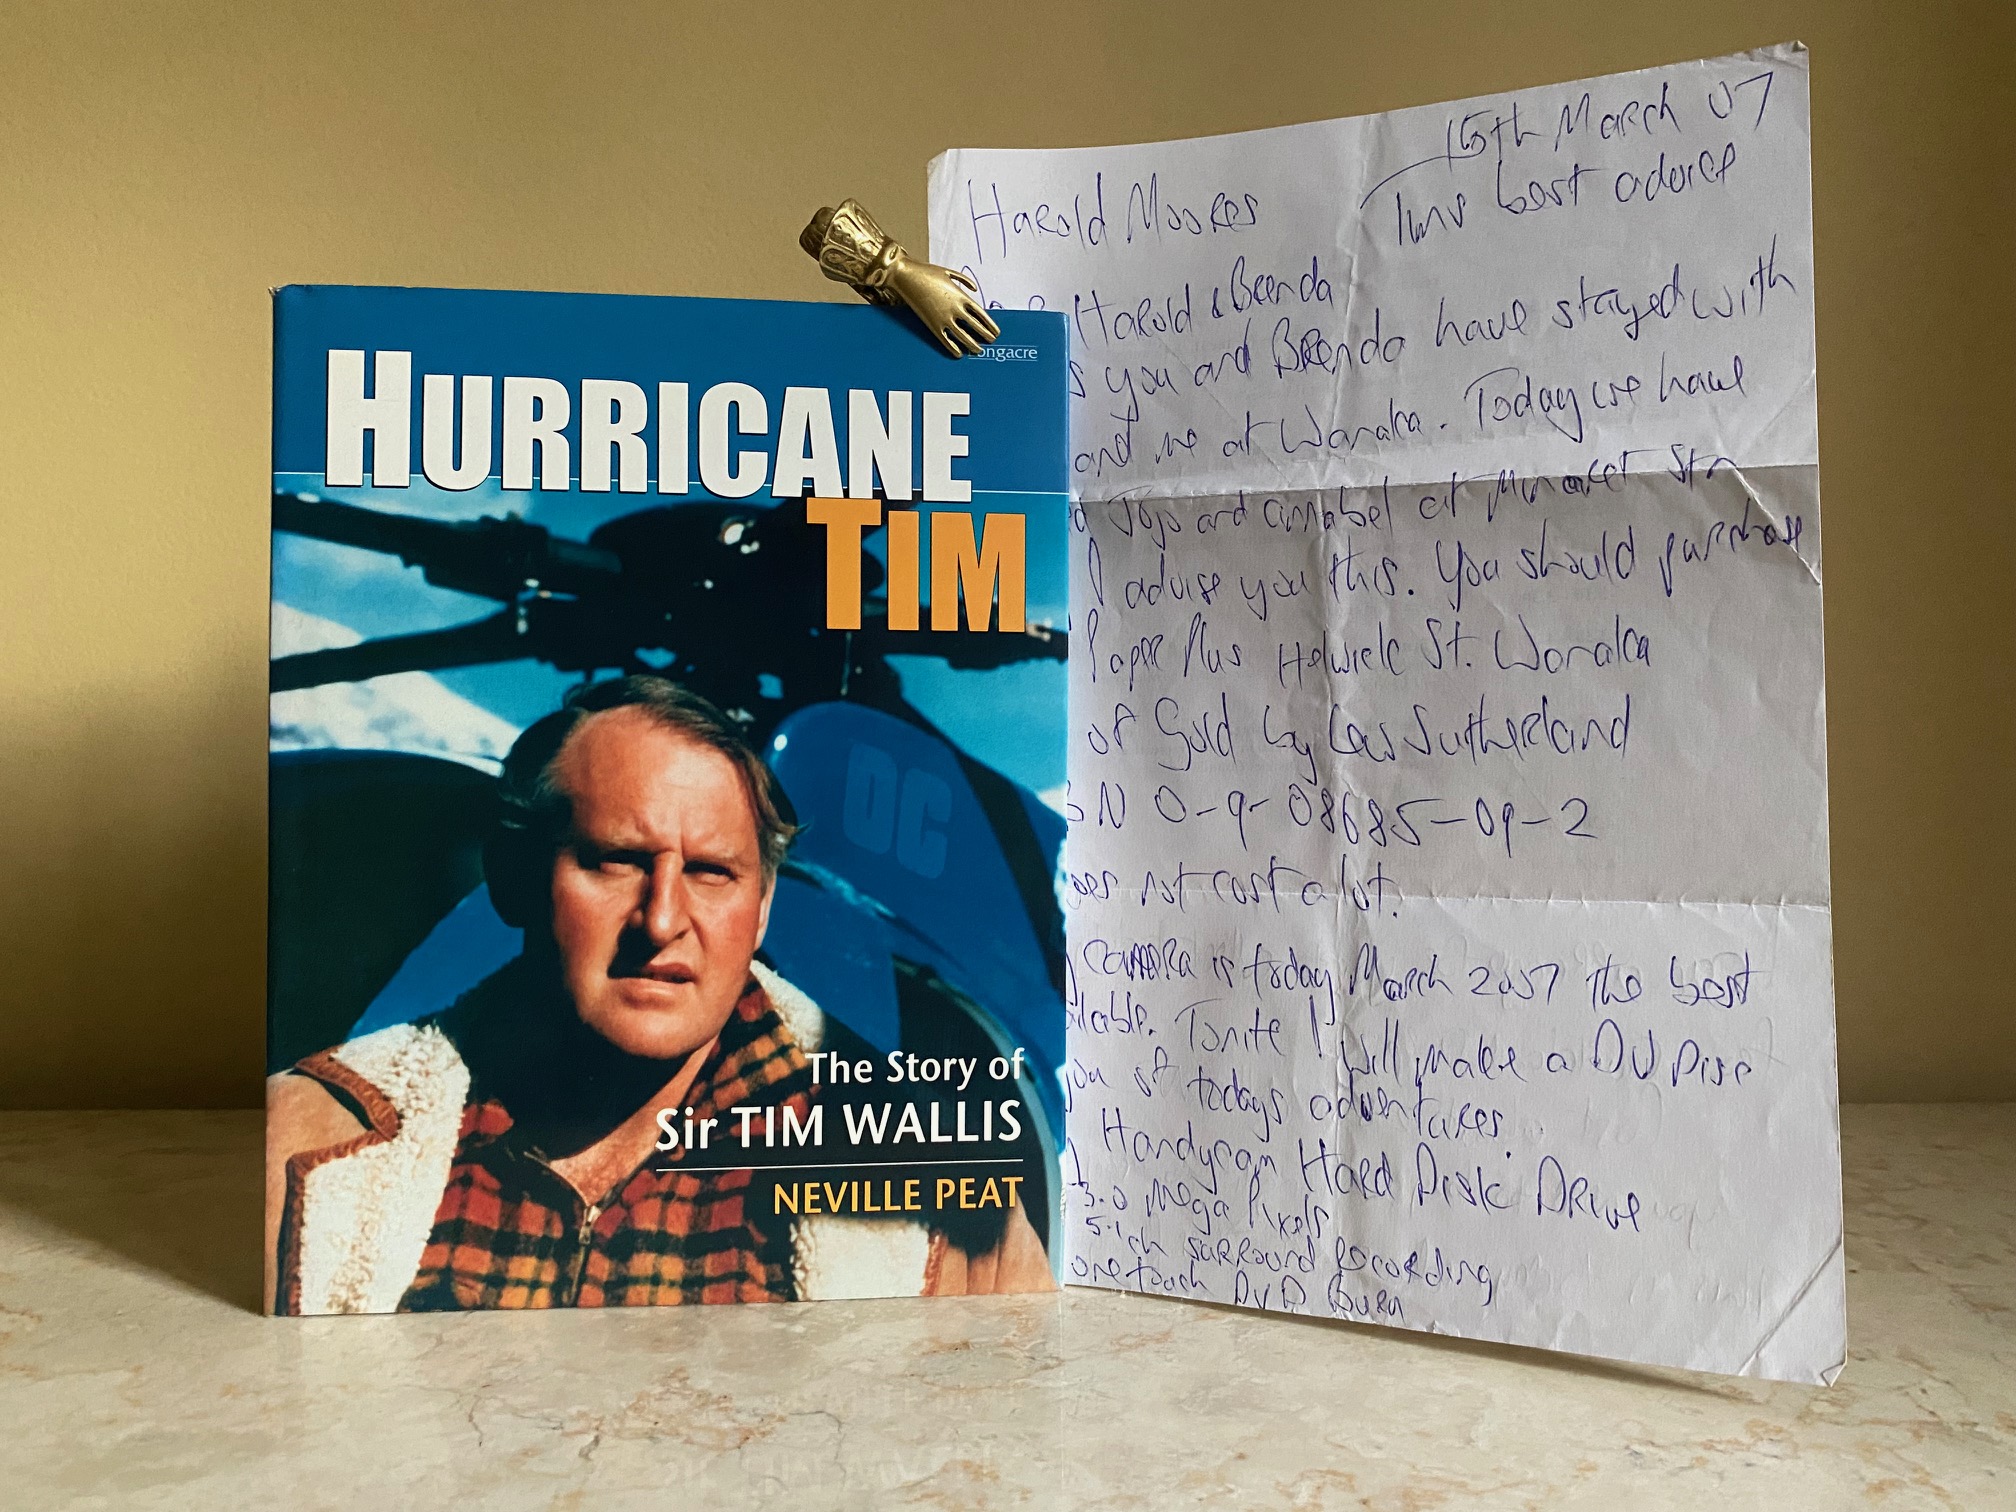 ongacre
HURRICANE
TIM
DC
The Story of
Sir TIM WALLIS
NEVILLE PEAT
15th March 07
Harold Moores
Tims best advice
Harold & Brenda
you and Brenda have stayed with
and me at Wanaka. Today we have
Jojo and annabel at Minaret Stn
I advise you this. You should purchase
Paper Plus Helwick St. Wanaka
of Gold by Les Sutherland
BN 0-9-08685-09-2
oes not cost a lot.
Camera is today March 2007 the best
ilable. Tonite I will make a DVD Disc
you of todays adventures.
Handycam Hard Disk Drive
3.0 Mega Pixels
5.1ch surround Recording
one touch DVD Burn